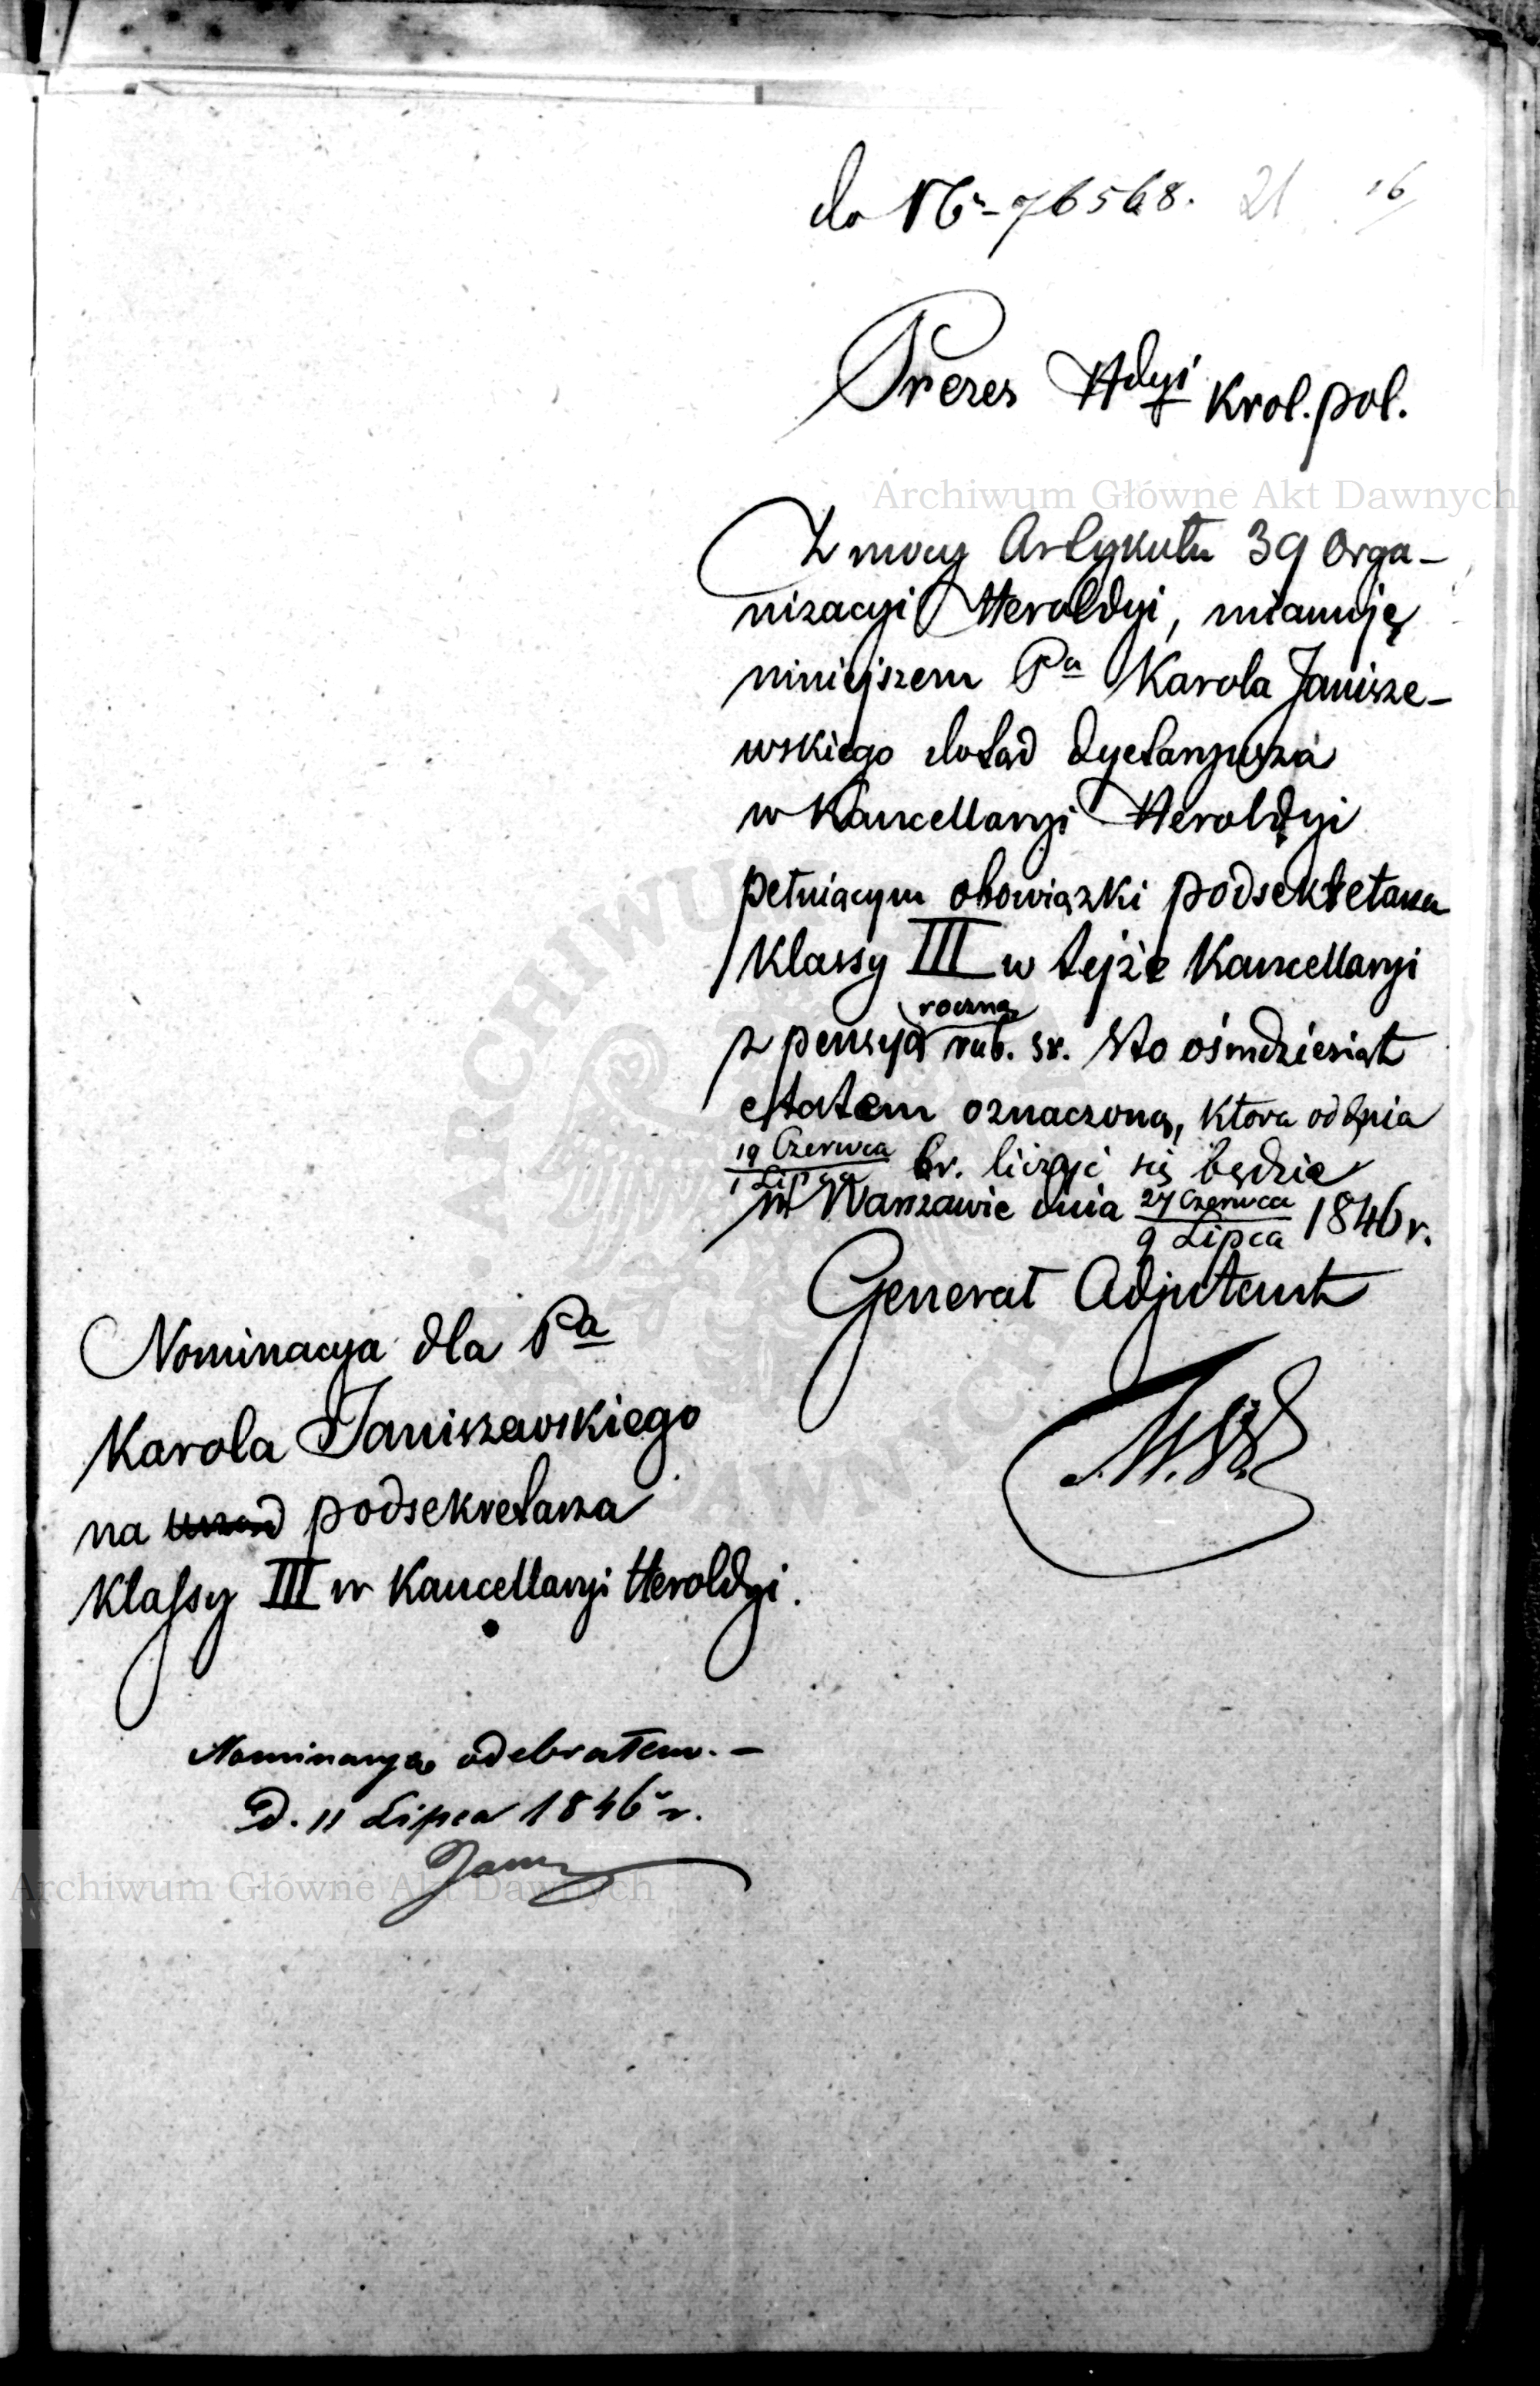 do Nr 76568. 21 16
Prezes Hdyi Krol. pol.
Archiwum Główne Akt Dawnych
Z mocy Artykułu 39 Orga-
nizacyi Heroldyi, mianuję
niniejszem Pa Karola Janisze-
wskiego dotąd dyetaryusza
w Kancellaryi Heroldyi
pełniącym obowiązki podsekretarza
klassy III w tejże Kancellaryi
roczną
z pensyą rub. sr. sto ośmdziesiąt
etatem oznaczoną, która od dnia
19 Czerwca
1 Lipca br. liczyć się będzie
w Warszawie dnia 27 Czerwca 1846 r.
9 Lipca
Generał Adjutant
Nominacya dla Pa
Karola Janiszewskiego
na urząd podsekretarza
klassy III w Kancellaryi Heroldyi.
Nominacyą odebrałem. -
D. 11 Lipca 1846 r.
Archiwum Główne Akt Dawnych
ARCHIWUM
DAWNYCH